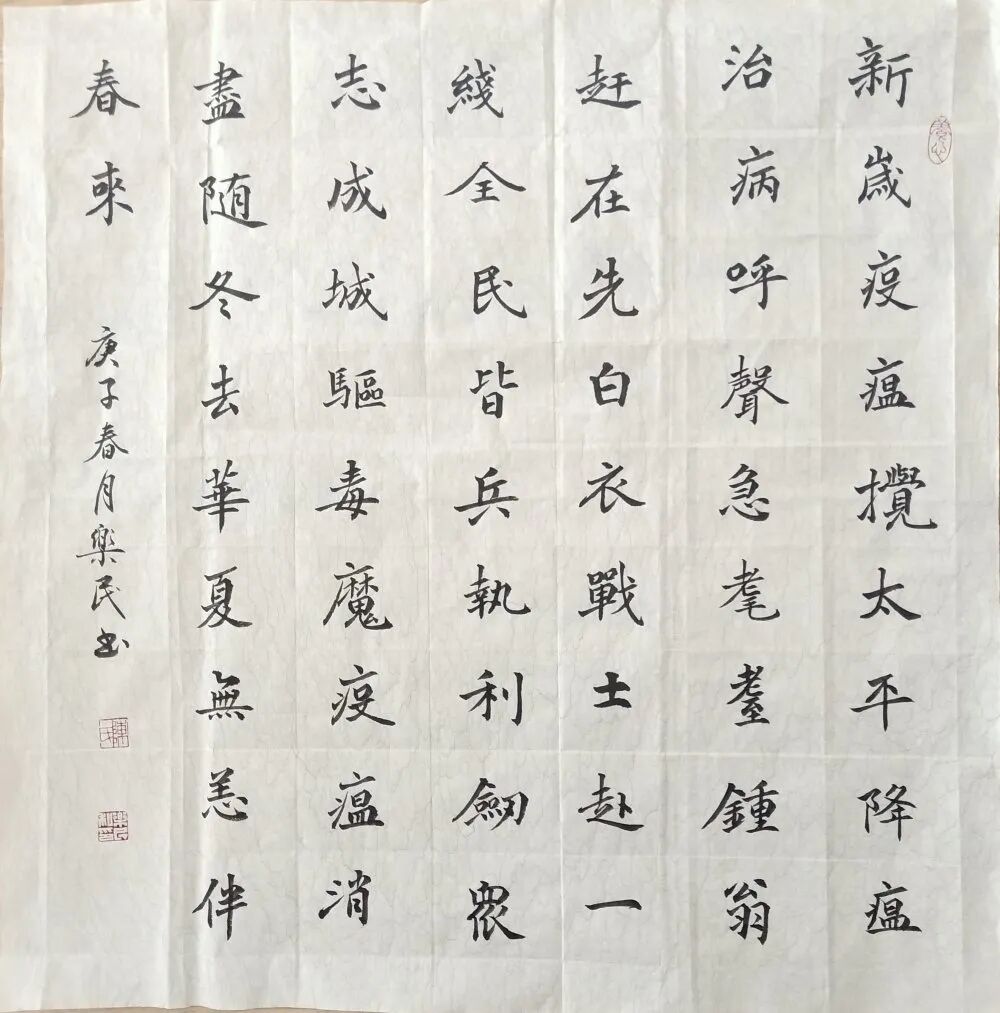 新歲疫瘟攪太平降瘟
治病呼聲急耄耋鍾翁
赶在先白衣戰士赴一
綫全民皆兵執利劒眾
志成城驅毒魔疫瘟消
盡随冬去華夏無恙伴
春來
庚子春月樂民书